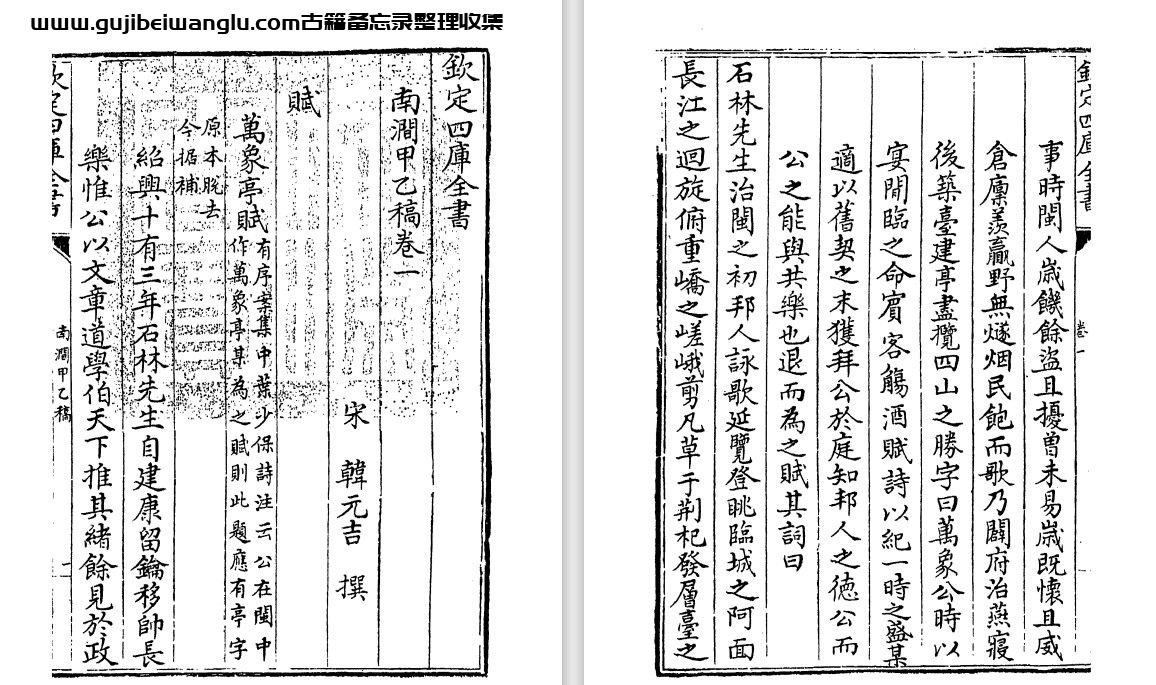 www.gujibeiwanglu.com古籍备忘录整理收集
欽定四庫全書
南澗甲乙稿卷一
宋 韓元吉 撰
賦
萬象亭賦有序案集中葉少保詩注云公在閩中
作萬象亭某為之賦則此題應有亭字
原本脫去
今据補
紹興十有三年石林先生自建康留鑰移帥長
樂惟公以文章道學伯天下推其緒餘見於政
欽定四庫全書
南澗甲乙稿
一
欽定四庫全書
卷一
事時閩人歲饑餘盜且擾曾未易歲既懷且威
倉廪羨贏野無燧烟民飽而歌乃闢府治燕寢
後築臺建亭盡攬四山之勝字曰萬象公時以
宴閒臨之命賓客觴酒賦詩以紀一時之盛某
適以舊契之末獲拜公於庭知邦人之德公而
公之能與共樂也退而為之賦其詞曰
石林先生治閩之初邦人詠歌延覽登眺臨城之阿面
長江之迴旋俯重嶠之嵯峨剪凡草于荆杞發層臺之